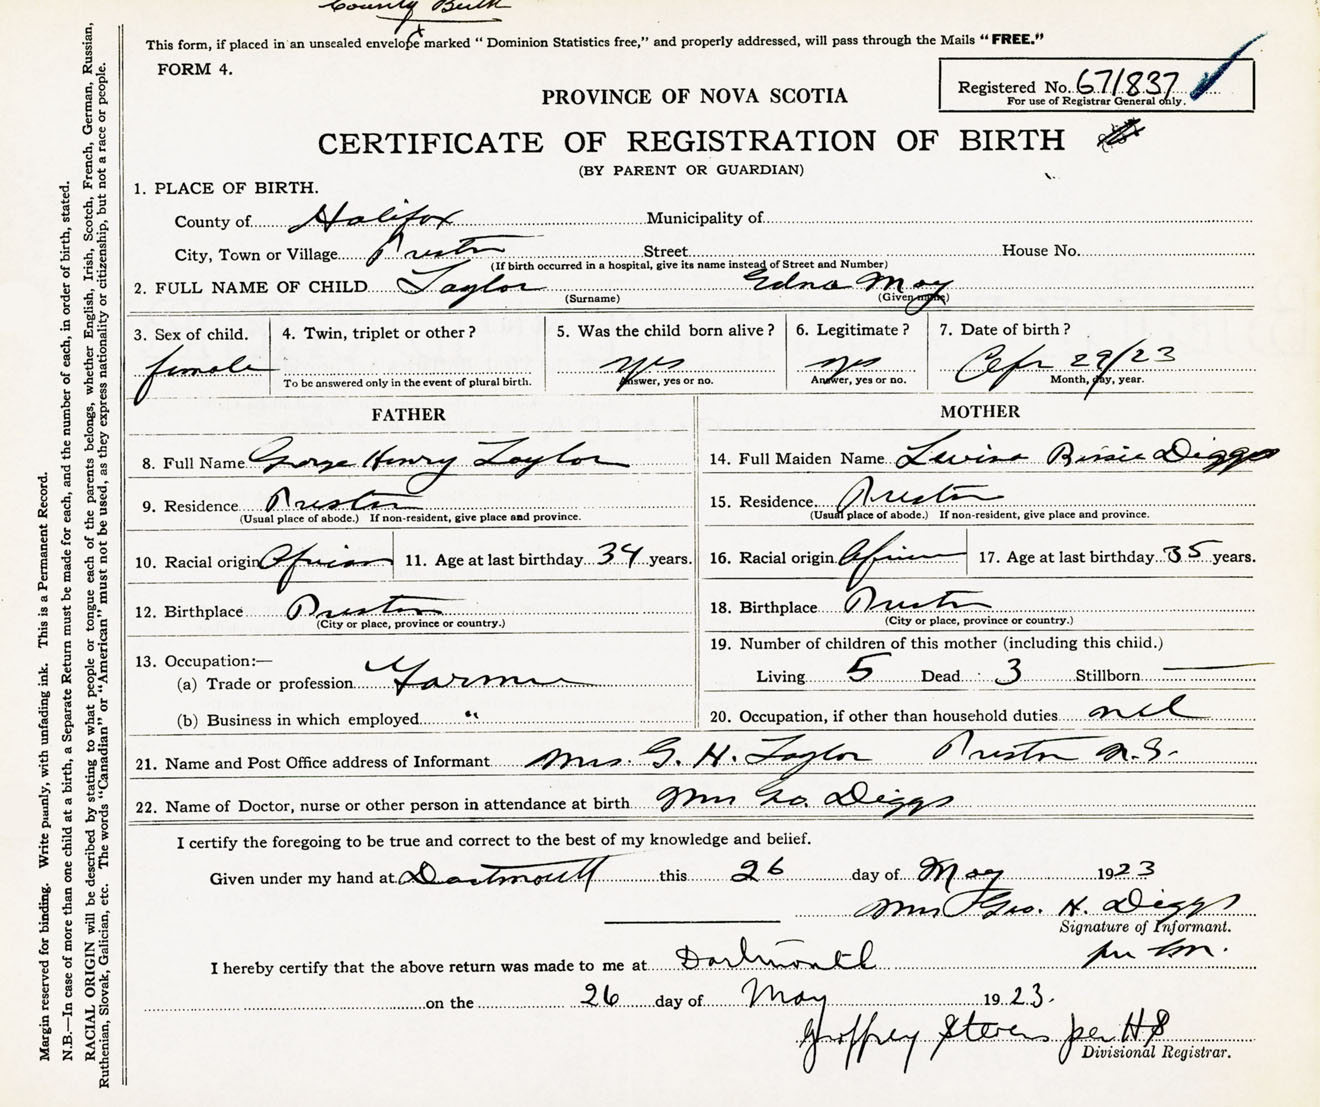 County Birth
This form, if placed in an unsealed envelope marked " Dominion Statistics free," and properly addressed, will pass through the Mails " FREE."
FORM 4.
Registered No. 671837
For use of Registrar General only.
PROVINCE OF NOVA SCOTIA
CERTIFICATE OF REGISTRATION OF BIRTH
(BY PARENT OR GUARDIAN)
1. PLACE OF BIRTH.
County of Halifax Municipality of
City, Town or Village Preston Street House No.
(If birth occurred in a hospital, give its name instead of Street and Number)
2. FULL NAME OF CHILD Taylor Edna May
(Surname) (Given name)
3. Sex of child. 4. Twin, triplet or other ? 5. Was the child born alive ? 6. Legitimate ? 7. Date of birth ?
female yes yes Apr 29/23
To be answered only in the event of plural birth. Answer, yes or no. Answer, yes or no. Month, day, year.
FATHER MOTHER
8. Full Name George Henry Taylor 14. Full Maiden Name Levina Bessie Diggs
9. Residence Preston 15. Residence Preston
(Usual place of abode.) If non-resident, give place and province. (Usual place of abode.) If non-resident, give place and province.
10. Racial origin African 11. Age at last birthday 34 years. 16. Racial origin African 17. Age at last birthday 35 years.
12. Birthplace Preston 18. Birthplace Preston
(City or place, province or country.) (City or place, province or country.)
19. Number of children of this mother (including this child.)
13. Occupation:—
(a) Trade or profession Farmer Living 5 Dead 3 Stillborn —
(b) Business in which employed " 20. Occupation, if other than household duties nil
21. Name and Post Office address of Informant Mrs. G. H. Taylor Preston N.S.
22. Name of Doctor, nurse or other person in attendance at birth Mrs Geo. Diggs
I certify the foregoing to be true and correct to the best of my knowledge and belief.
Given under my hand at Dartmouth this 26 day of May 1923
Mrs Geo. H. Diggs
Signature of Informant.
I hereby certify that the above return was made to me at Dartmouth per
on the 26 day of May 1923.
Geoffrey Stevens per HS
Divisional Registrar.
Margin reserved for binding. Write plainly, with unfading ink. This is a Permanent Record.
N.B.—In case of more than one child at a birth, a Separate Return must be made for each, and the number of each, in order of birth, stated.
RACIAL ORIGIN will be described by stating to what people or tongue each of the parents belongs, whether English, Irish, Scotch, French, German, Russian,
Ruthenian, Slovak, Galician, etc. The words "Canadian" or "American" must not be used, as they express nationality or citizenship, but not a race or people.